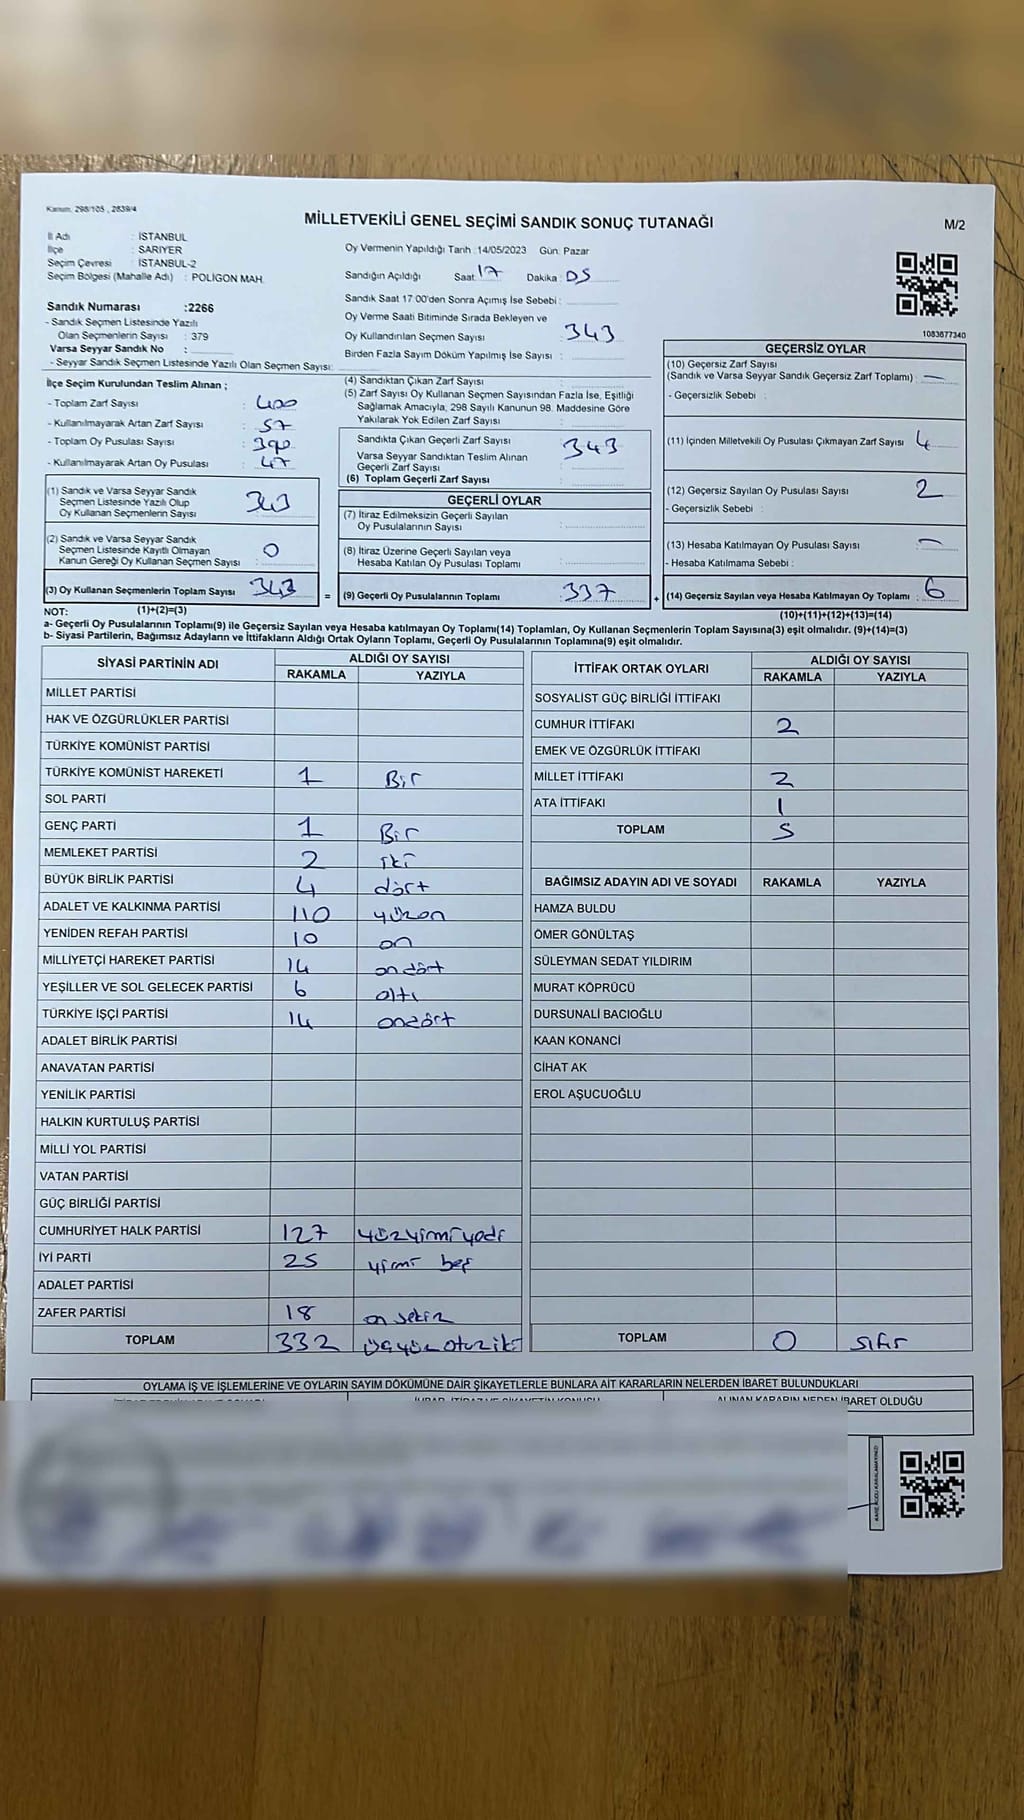 Kanun, 298/105 , 2839/4
MİLLETVEKİLİ GENEL SEÇİMİ SANDIK SONUÇ TUTANAĞI
M/2
İl Adı : İSTANBUL
İlçe : SARIYER
Seçim Çevresi : İSTANBUL-2
Seçim Bölgesi (Mahalle Adı) : POLİGON MAH.
Sandık Numarası :2266
- Sandık Seçmen Listesinde Yazılı
Olan Seçmenlerin Sayısı : 379
Varsa Seyyar Sandık No :
- Seyyar Sandık Seçmen Listesinde Yazılı Olan Seçmen Sayısı:
Oy Vermenin Yapıldığı Tarih :14/05/2023 Gün: Pazar
Sandığın Açıldığı Saat: 17 Dakika : 05
Sandık Saat 17:00'den Sonra Açımış İse Sebebi :
Oy Verme Saati Bitiminde Sırada Bekleyen ve
Oy Kullandırılan Seçmen Sayısı : 343
Birden Fazla Sayım Döküm Yapılmış İse Sayısı :
1083677340
İlçe Seçim Kurulundan Teslim Alınan ;
- Toplam Zarf Sayısı : 400
- Kullanılmayarak Artan Zarf Sayısı : 57
- Toplam Oy Pusulası Sayısı : 390
- Kullanılmayarak Artan Oy Pusulası : 47
(1) Sandık ve Varsa Seyyar Sandık
Seçmen Listesinde Yazılı Olup
Oy Kullanan Seçmenlerin Sayısı : 343
(2) Sandık ve Varsa Seyyar Sandık
Seçmen Listesinde Kayıtlı Olmayan
Kanun Gereği Oy Kullanan Seçmen Sayısı : 0
(3) Oy Kullanan Seçmenlerin Toplam Sayısı : 343
(4) Sandıktan Çıkan Zarf Sayısı :
(5) Zarf Sayısı Oy Kullanan Seçmen Sayısından Fazla İse, Eşitliği
Sağlamak Amacıyla, 298 Sayılı Kanunun 98. Maddesine Göre
Yakılarak Yok Edilen Zarf Sayısı :
Sandıkta Çıkan Geçerli Zarf Sayısı : 343
Varsa Seyyar Sandıktan Teslim Alınan
Geçerli Zarf Sayısı :
(6) Toplam Geçerli Zarf Sayısı :
GEÇERLİ OYLAR
(7) İtiraz Edilmeksizin Geçerli Sayılan
Oy Pusulalarının Sayısı :
(8) İtiraz Üzerine Geçerli Sayılan veya
Hesaba Katılan Oy Pusulası Toplamı :
= (9) Geçerli Oy Pusulalarının Toplamı : 337 +
GEÇERSİZ OYLAR
(10) Geçersiz Zarf Sayısı
(Sandık ve Varsa Seyyar Sandık Geçersiz Zarf Toplamı) : -
- Geçersizlik Sebebi :
(11) İçinden Milletvekili Oy Pusulası Çıkmayan Zarf Sayısı : 4
(12) Geçersiz Sayılan Oy Pusulası Sayısı : 2
- Geçersizlik Sebebi :
(13) Hesaba Katılmayan Oy Pusulası Sayısı : -
- Hesaba Katılmama Sebebi :
(14) Geçersiz Sayılan veya Hesaba Katılmayan Oy Toplamı : 6
NOT: (1)+(2)=(3)
(10)+(11)+(12)+(13)=(14)
a- Geçerli Oy Pusulalarının Toplamı(9) ile Geçersiz Sayılan veya Hesaba katılmayan Oy Toplamı(14) Toplamları, Oy Kullanan Seçmenlerin Toplam Sayısına(3) eşit olmalıdır. (9)+(14)=(3)
b- Siyasi Partilerin, Bağımsız Adayların ve İttifakların Aldığı Ortak Oyların Toplamı, Geçerli Oy Pusulalarının Toplamına(9) eşit olmalıdır.
SİYASİ PARTİNİN ADI ALDIĞI OY SAYISI
RAKAMLA YAZIYLA
MİLLET PARTİSİ
HAK VE ÖZGÜRLÜKLER PARTİSİ
TÜRKİYE KOMÜNİST PARTİSİ
TÜRKİYE KOMÜNİST HAREKETİ 1 Bir
SOL PARTİ
GENÇ PARTİ 1 Bir
MEMLEKET PARTİSİ 2 iki
BÜYÜK BİRLİK PARTİSİ 4 dört
ADALET VE KALKINMA PARTİSİ 110 yüzon
YENİDEN REFAH PARTİSİ 10 on
MİLLİYETÇİ HAREKET PARTİSİ 14 ondört
YEŞİLLER VE SOL GELECEK PARTİSİ 6 altı
TÜRKİYE İŞÇİ PARTİSİ 14 ondört
ADALET BİRLİK PARTİSİ
ANAVATAN PARTİSİ
YENİLİK PARTİSİ
HALKIN KURTULUŞ PARTİSİ
MİLLİ YOL PARTİSİ
VATAN PARTİSİ
GÜÇ BİRLİĞİ PARTİSİ
CUMHURİYET HALK PARTİSİ 127 yüzyirmiyedi
İYİ PARTİ 25 yirmi beş
ADALET PARTİSİ
ZAFER PARTİSİ 18 on sekiz
TOPLAM 332 üçyüz otuziki
İTTİFAK ORTAK OYLARI ALDIĞI OY SAYISI
RAKAMLA YAZIYLA
SOSYALİST GÜÇ BİRLİĞİ İTTİFAKI
CUMHUR İTTİFAKI 2
EMEK VE ÖZGÜRLÜK İTTİFAKI
MİLLET İTTİFAKI 2
ATA İTTİFAKI 1
TOPLAM 5
BAĞIMSIZ ADAYIN ADI VE SOYADI RAKAMLA YAZIYLA
HAMZA BULDU
ÖMER GÖNÜLTAŞ
SÜLEYMAN SEDAT YILDIRIM
MURAT KÖPRÜCÜ
DURSUNALİ BACIOĞLU
KAAN KONANCİ
CİHAT AK
EROL AŞUCUOĞLU
TOPLAM 0 sıfır
OYLAMA İŞ VE İŞLEMLERİNE VE OYLARIN SAYIM DÖKÜMÜNE DAİR ŞİKAYETLERLE BUNLARA AİT KARARLARIN NELERDEN İBARET BULUNDUKLARI
ALINAN KARARIN NEDEN İBARET OLDUĞU